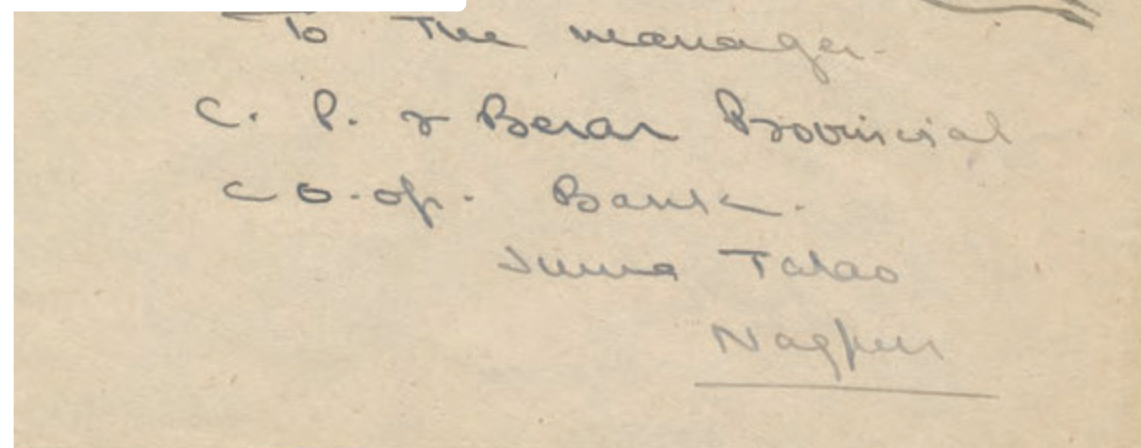 To The manager.
C. P. & Berar Provincial
Co.op. Bank.
Juma Talao
Nagpur